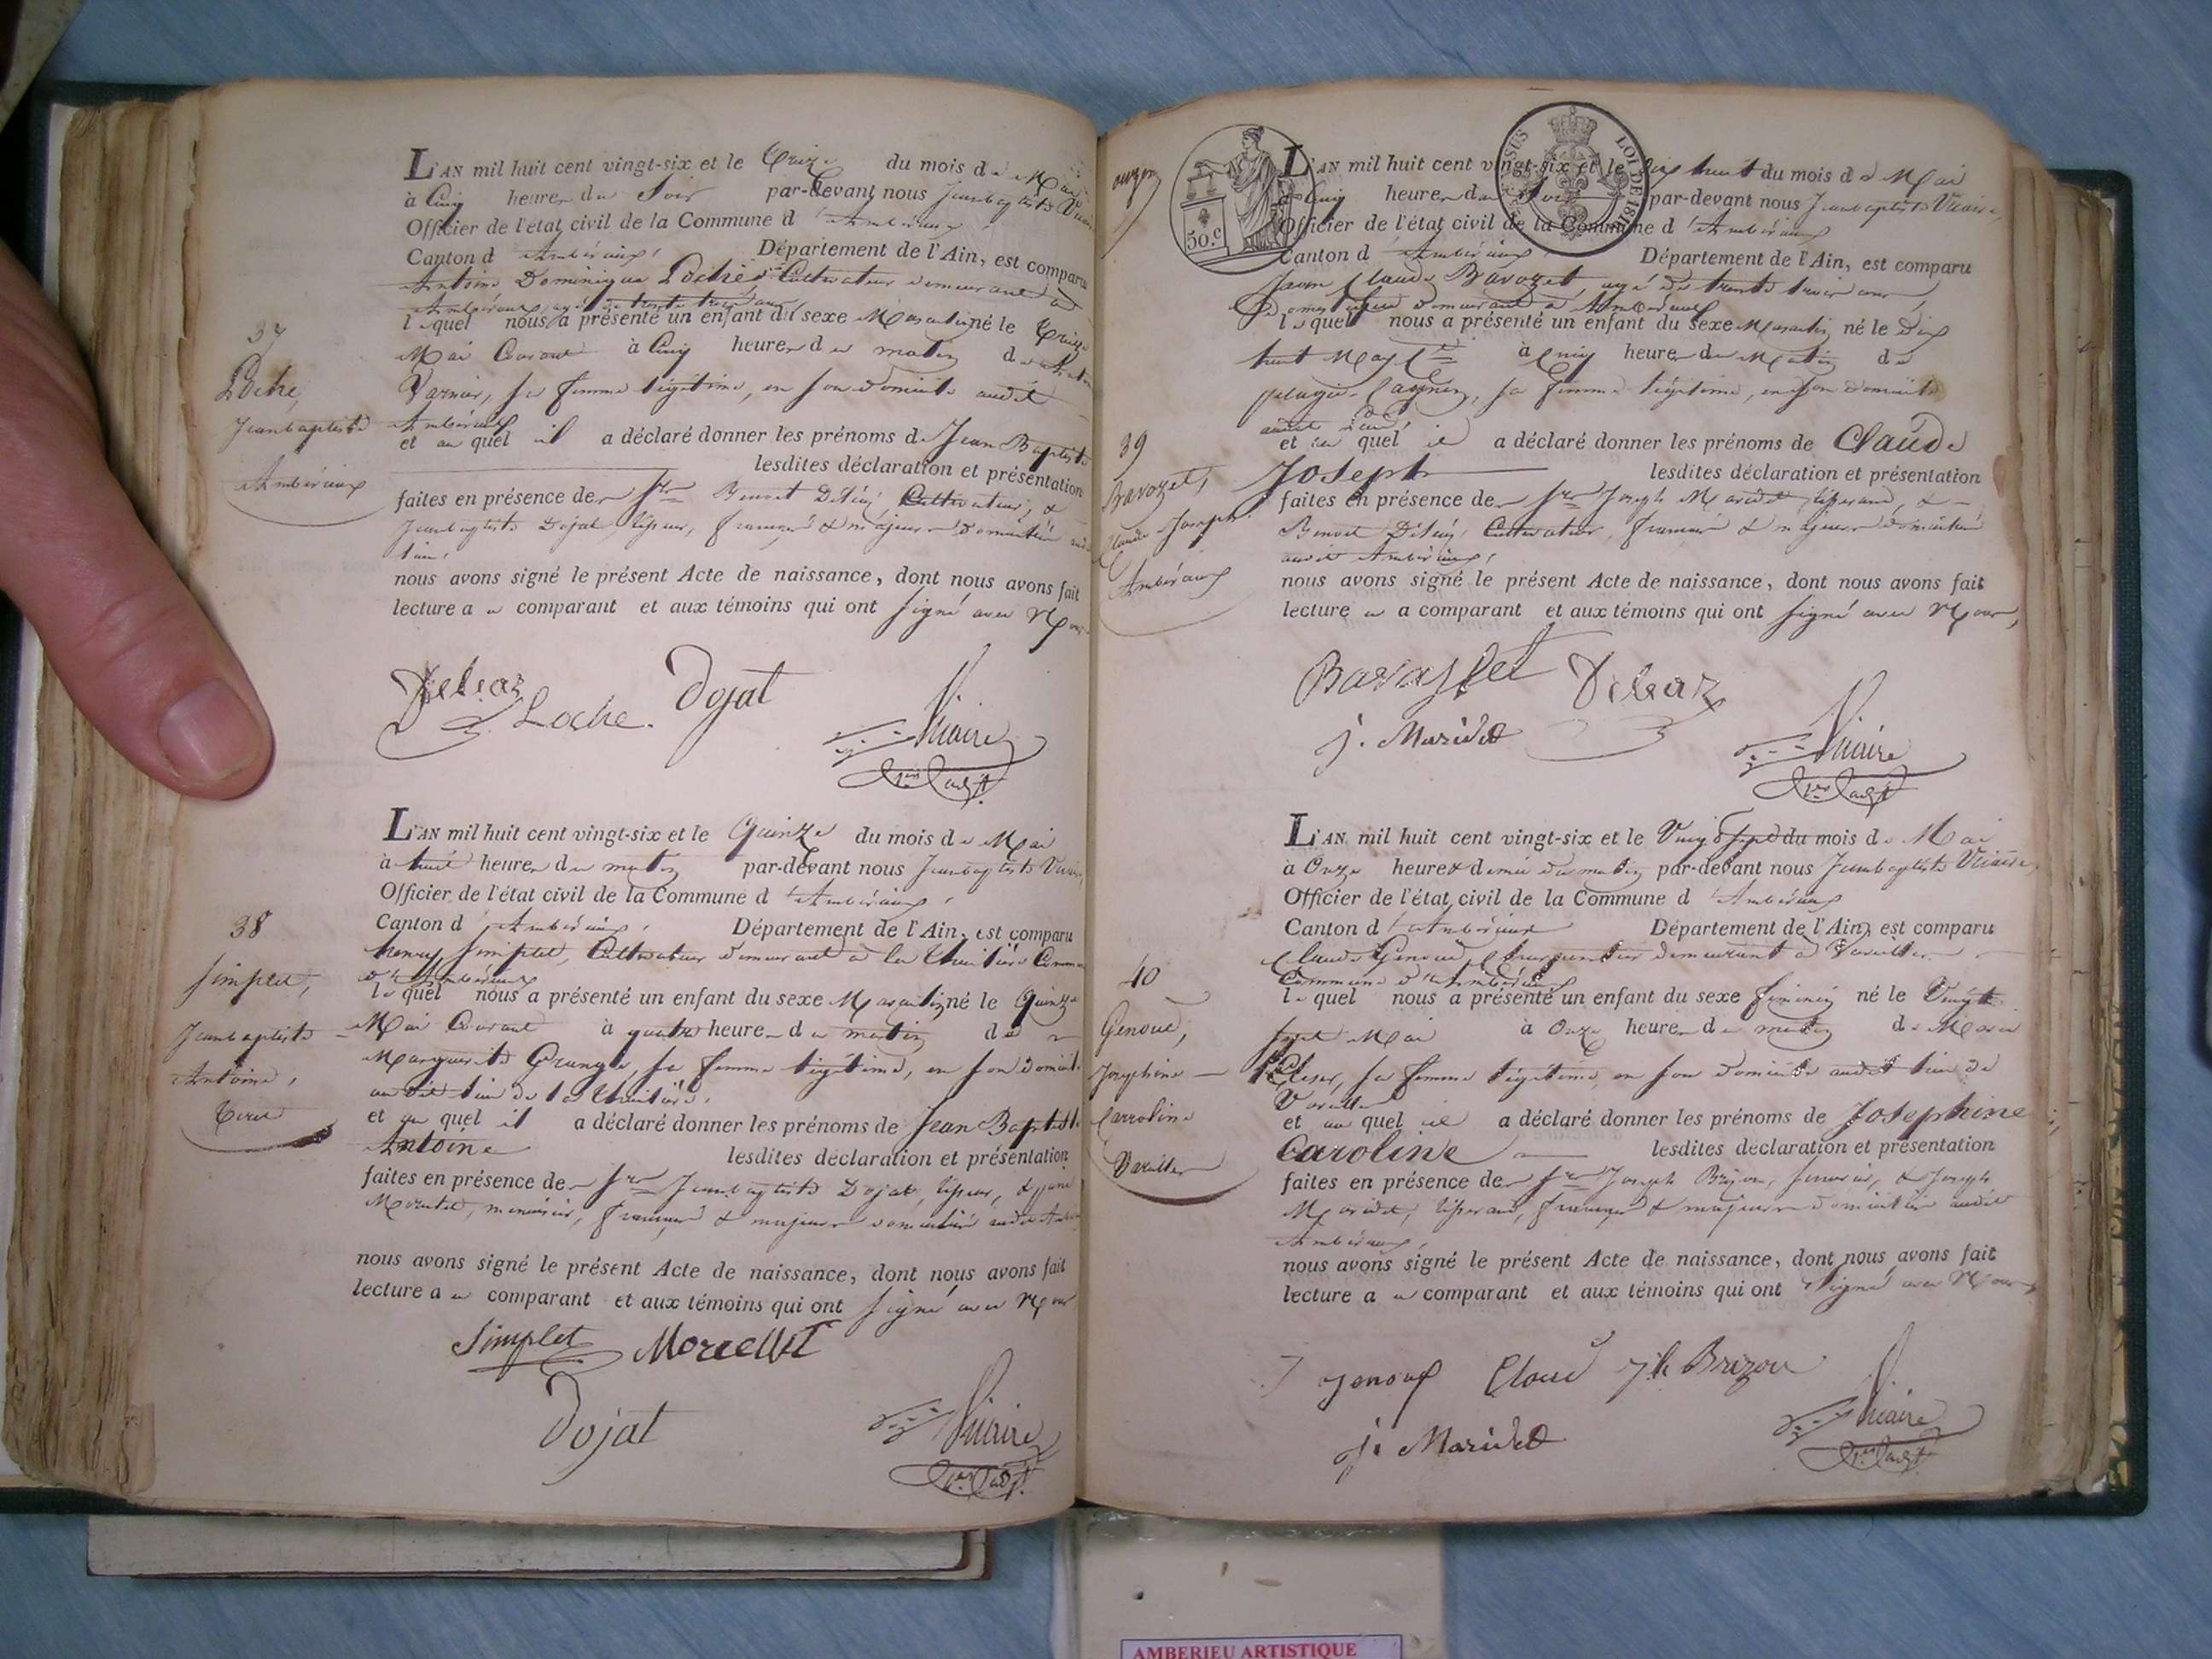 L'AN mil huit cent vingt-six et le treize du mois de Mai
à Cinq heures du Soir par-devant nous Jeanbaptiste Vicaire
Officier de l'état civil de la Commune d'Ambérieux
Canton d'Ambérieux, Département de l'Ain, est comparu
Antoine Dominique Loche, Cultivateur demeurant à
Ambérieux, agé de trente trois ans
lequel nous a présenté un enfant du sexe Masculin né le treize
Mai Courant à Cinq heures du matin de
Varnier, sa femme légitime, en son domicile audit
Ambérieux
et au quel il a déclaré donner les prénoms de Jean Baptiste
lesdites déclaration et présentation
faites en présence de Srs Benoit Cultivateur, &
Jeanbaptiste Dojat, français & majeurs domiciliés audit
lieu,
nous avons signé le présent Acte de naissance, dont nous avons fait
lecture au comparant et aux témoins qui ont signé avec Nous
Loche. Dojat
Vicaire
37
Loche,
Jeanbaptiste
Ambérieux
L'AN mil huit cent vingt-six et le Quinze du mois de Mai
à huit heures du matin par-devant nous Jeanbaptiste Vicaire,
Officier de l'état civil de la Commune d'Ambérieux,
Canton d'Ambérieux, Département de l'Ain, est comparu
henry Simplet, Cultivateur demeurant à la Commune
d'Ambérieux
lequel nous a présenté un enfant du sexe Masculin né le Quinze
Mai Courant à quatre heures du matin de
Marguerite Grangé, sa femme légitime, en son domicile
au dit lieu de la
et au quel il a déclaré donner les prénoms de Jean Baptiste
Antoine lesdites déclaration et présentation
faites en présence de Srs Jeanbaptiste Dojat, &
menuisier, français & majeurs domiciliés audit
nous avons signé le présent Acte de naissance, dont nous avons fait
lecture au comparant et aux témoins qui ont signé avec Nous
Simplet Morellet
Dojat
Vicaire
38
Simplet,
Jeanbaptiste
Antoine,
50.c
LOI DE 1816
L'AN mil huit cent vingt-six et le dix huit du mois de Mai
à Cinq heures du Soir par-devant nous Jeanbaptiste Vicaire,
Officier de l'état civil de la Commune d'Ambérieux
Canton d'Ambérieux, Département de l'Ain, est comparu
Jean Claude Bavozet, agé de trente trois ans,
Domestique demeurant à Ambérieux
lequel nous a présenté un enfant du sexe Masculin né le Dix
huit May à Cinq heures du Matin de
pelagie sa femme légitime, en son domicile
audit lieu,
et au quel il a déclaré donner les prénoms de Claude
Joseph lesdites déclaration et présentation
faites en présence de Srs Joseph Maridet, &
Benoit Cultivateur, français & majeurs domiciliés
audit Ambérieux,
nous avons signé le présent Acte de naissance, dont nous avons fait
lecture au comparant et aux témoins qui ont signé avec Nous,
j. Maridet
Vicaire
39
Bavozet,
Claude Joseph
Ambérieux
L'AN mil huit cent vingt-six et le Vingt Sept du mois de Mai
à Onze heures & demie du matin par-devant nous Jeanbaptiste Vicaire,
Officier de l'état civil de la Commune d'Ambérieux
Canton d'Ambérieux Département de l'Ain, est comparu
Claude Genoud, Charpentier demeurant à Vareilles
Commune d'Ambérieux
lequel nous a présenté un enfant du sexe féminin né le Vingt
sept Mai à Onze heures du matin de Marie
sa femme légitime, en son domicile audit lieu de
Vareilles
et au quel il a déclaré donner les prénoms de Josephine
Caroline lesdites déclaration et présentation
faites en présence de Srs Joseph & Joseph
Maridet, français & majeurs domiciliés audit
Ambérieux,
nous avons signé le présent Acte de naissance, dont nous avons fait
lecture au comparant et aux témoins qui ont Signé avec Nous
jh Brizon
j. Maridet
Vicaire
40
Genoud,
Josephine
Carroline
Vareilles
AMBERIEU ARTISTIQUE